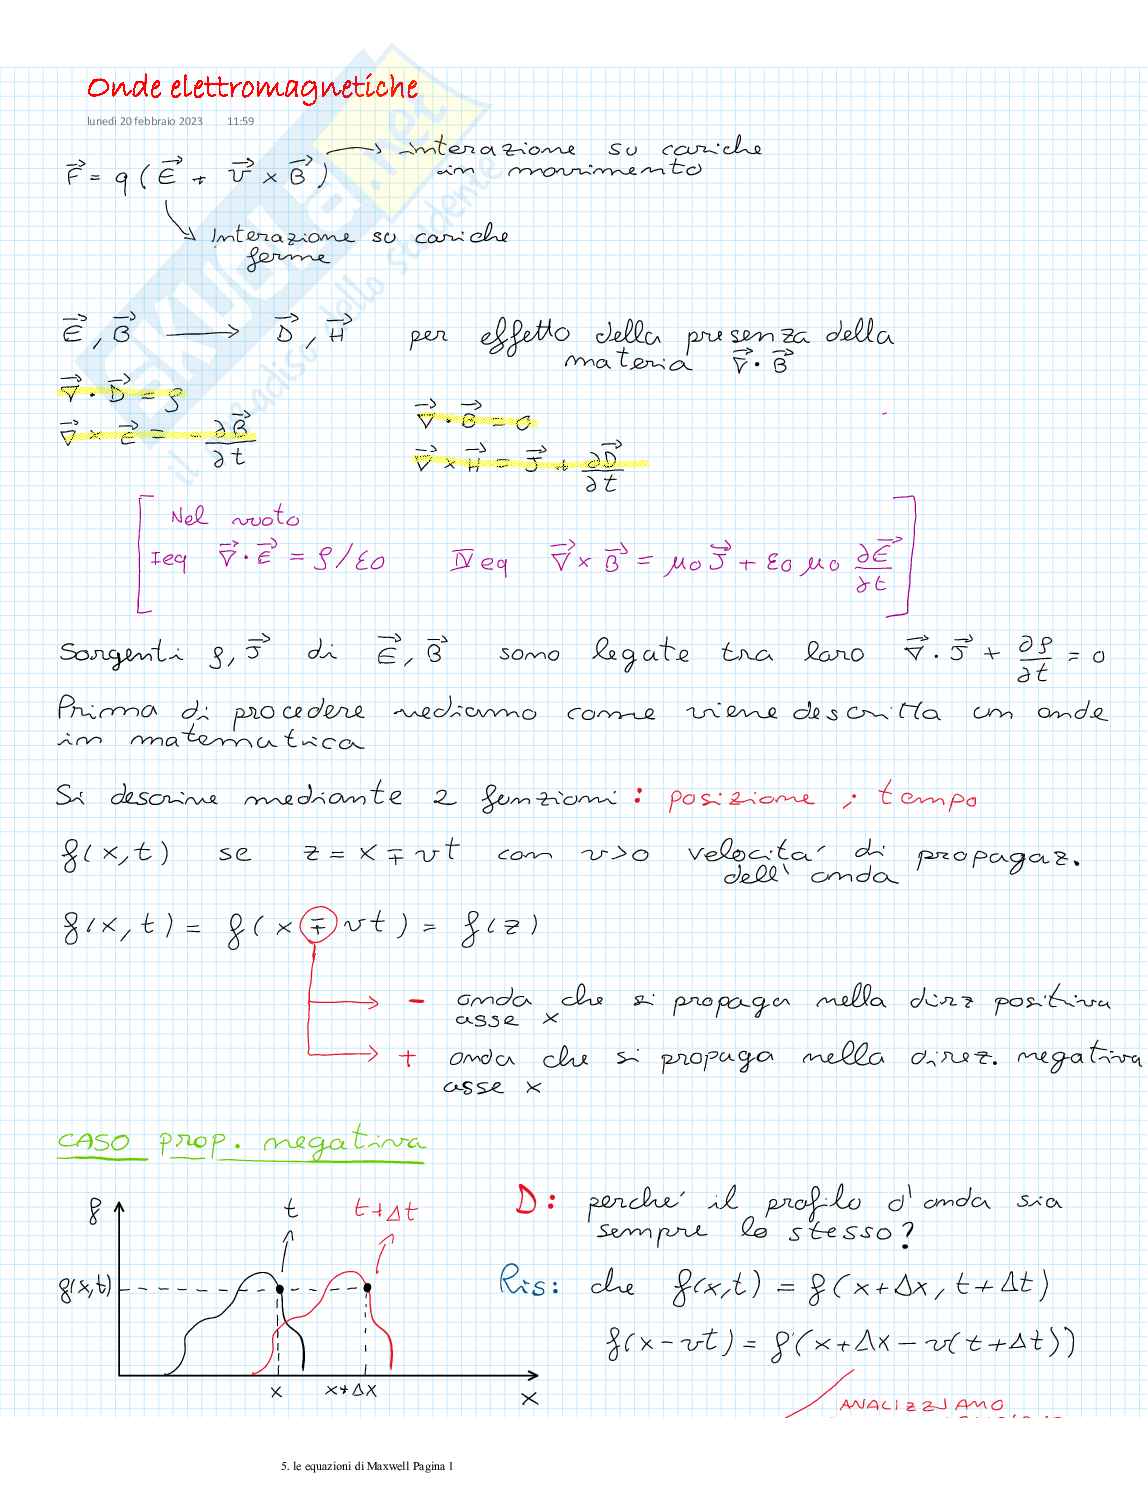 Onde elettromagnetiche
lunedì 20 febbraio 2023 11:59
F⃗ = q ( E⃗ + v⃗ × B⃗ ) → interazione su cariche
in movimento
Interazione su cariche
ferme
E⃗ , B⃗ → D⃗ , H⃗ per effetto della presenza della
materia ∇⃗ · B⃗
∇⃗ · D⃗ = ρ
∇⃗ · B⃗ = 0
∇⃗ × E⃗ = - ∂B⃗/∂t
∇⃗ × H⃗ = J⃗ + ∂D⃗/∂t
Nel vuoto
I eq ∇⃗ · E⃗ = ρ/ε0 IV eq ∇⃗ × B⃗ = μ0 J⃗ + ε0 μ0 ∂E⃗/∂t
Sorgenti ρ, J⃗ di E⃗, B⃗ sono legate tra loro ∇⃗ · J⃗ + ∂ρ/∂t = 0
Prima di procedere vediamo come viene descritta un onda
in matematica
Si descrive mediante 2 funzioni : posizione ; tempo
f(x,t) se z = x ∓ vt con v>0 velocita' di propagaz.
dell' onda
f(x,t) = f(x ∓ vt) = f(z)
- onda che si propaga nella dirz positiva
asse x
+ onda che si propaga nella direz. negativa
asse x
CASO prop. negativa
f t t+Δt
D: perché il profilo d'onda sia
sempre lo stesso?
f(x,t)
Ris: che f(x,t) = f(x+Δx, t+Δt)
f(x-vt) = f(x+Δx-v(t+Δt))
x x+Δx x
ANALIZZIAMO
5. le equazioni di Maxwell Pagina 1
SKUOLA.net
il paradiso dello studente